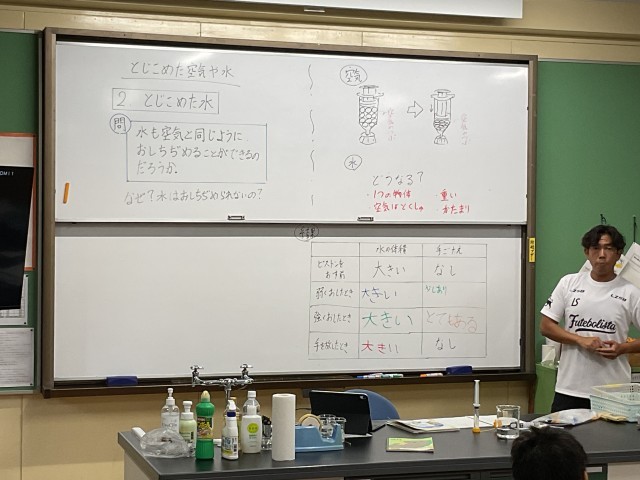 とじこめた空気や水
2 とじこめた水
問
水も空気と同じように、
おしちぢめることができるの
だろうか。
なぜ?水はおしちぢめられないの?
空気
水
どうなる?
・1つの物体
・空気はとくしゅ
・重い
・かたまり
結果
水の体積 手ごたえ
ピストンを
おす前 大きい なし
弱くおしたとき 大きい 少しあり
強くおしたとき 大きい とてもある
手を放したとき 大きい なし
LS
Futebolista